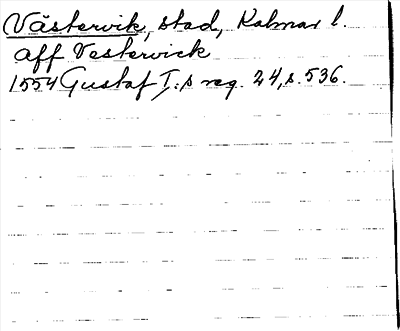 Västervik, stad, Kalmar l.
aff Vestervick
1554 Gustaf I:s reg. 24, s. 536.